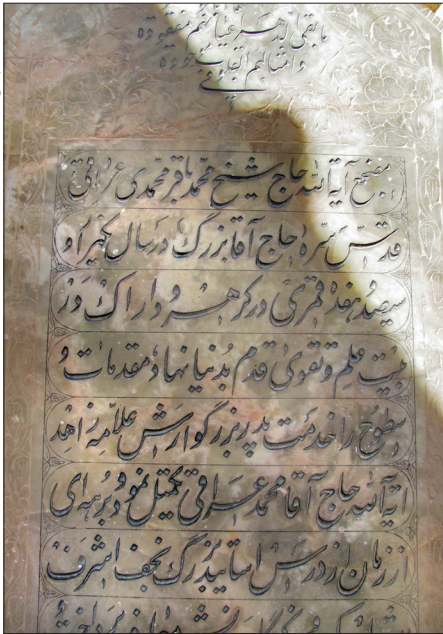 ما بقی الدهر اعیانهم مفقودة
و امثالهم فی القلوب موجودة
مضجع آیة الله حاج شیخ محمد باقر محمدی عراقی
قدس سره حاج آقا بزرگ در سال یکهزار و
سیصد و هفده قمری در کرهرود اراک در
بیت علم و تقوی قدم بدنیا نهاد مقدمات و
سطوح را خدمت پدر بزرگوارش علامه زاهد
آیة الله حاج آقا محمد عراقی تکمیل نمود و برهه ای
از زمان از درس اساتید بزرگ نجف اشرف